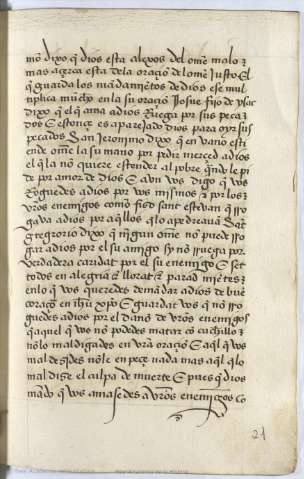 mō dixo q̄ dios esta alexos del ome malo ⁊
mas açerca esta dela oraçiō del ome Justo El
q̄ guarda los mādamiētos de dios ese mul
tiplica mucho en la su oraçiō Josue fijo de
dixo q̄ el q̄ ama adios Ruega por sus peca
dos E estonçe es aparejado dios para oyr sus
pecados San Jeronimo dixo q̄ en vano esti
ende ome la su mano por pedir merçed a dios
el q̄ la nō quiere estender al pobre quādo le pi
de por amor de dios E avn vos digo q̄ vos
Roguedes adios por vos mismos ⁊ por los
vr̄os enemigos como fizo sant estevan q̄ Ro
gava adios por aq̄llos q̄ lo apedreavā Sāt
gregorio dixo q̄ nīgun ome nō puede Ro
gar adios por el su amigo sy nō Ruega por
verdadera caridat por el su enemigo E set
todos en alegria ⁊ llorat ⁊ parad miētes
en lo q̄ vos queredes demādar adios de buē
coraçō en ihū xp̄o E guardat vos q̄ nō Ro
guedes adios por el daño de vr̄os enemigos
q̄ aquel q̄ vos nō podedes matar cō cuchillo
nō lo maldigades en vr̄a oraçiō E aq̄l q̄ vos
mal desides nō le en peçe nada mas aq̄l q̄ lo
mal dise el culpa de muerte E pues q̄ dios
mādo q̄ vos amasedes a vr̄os enemigos co
21